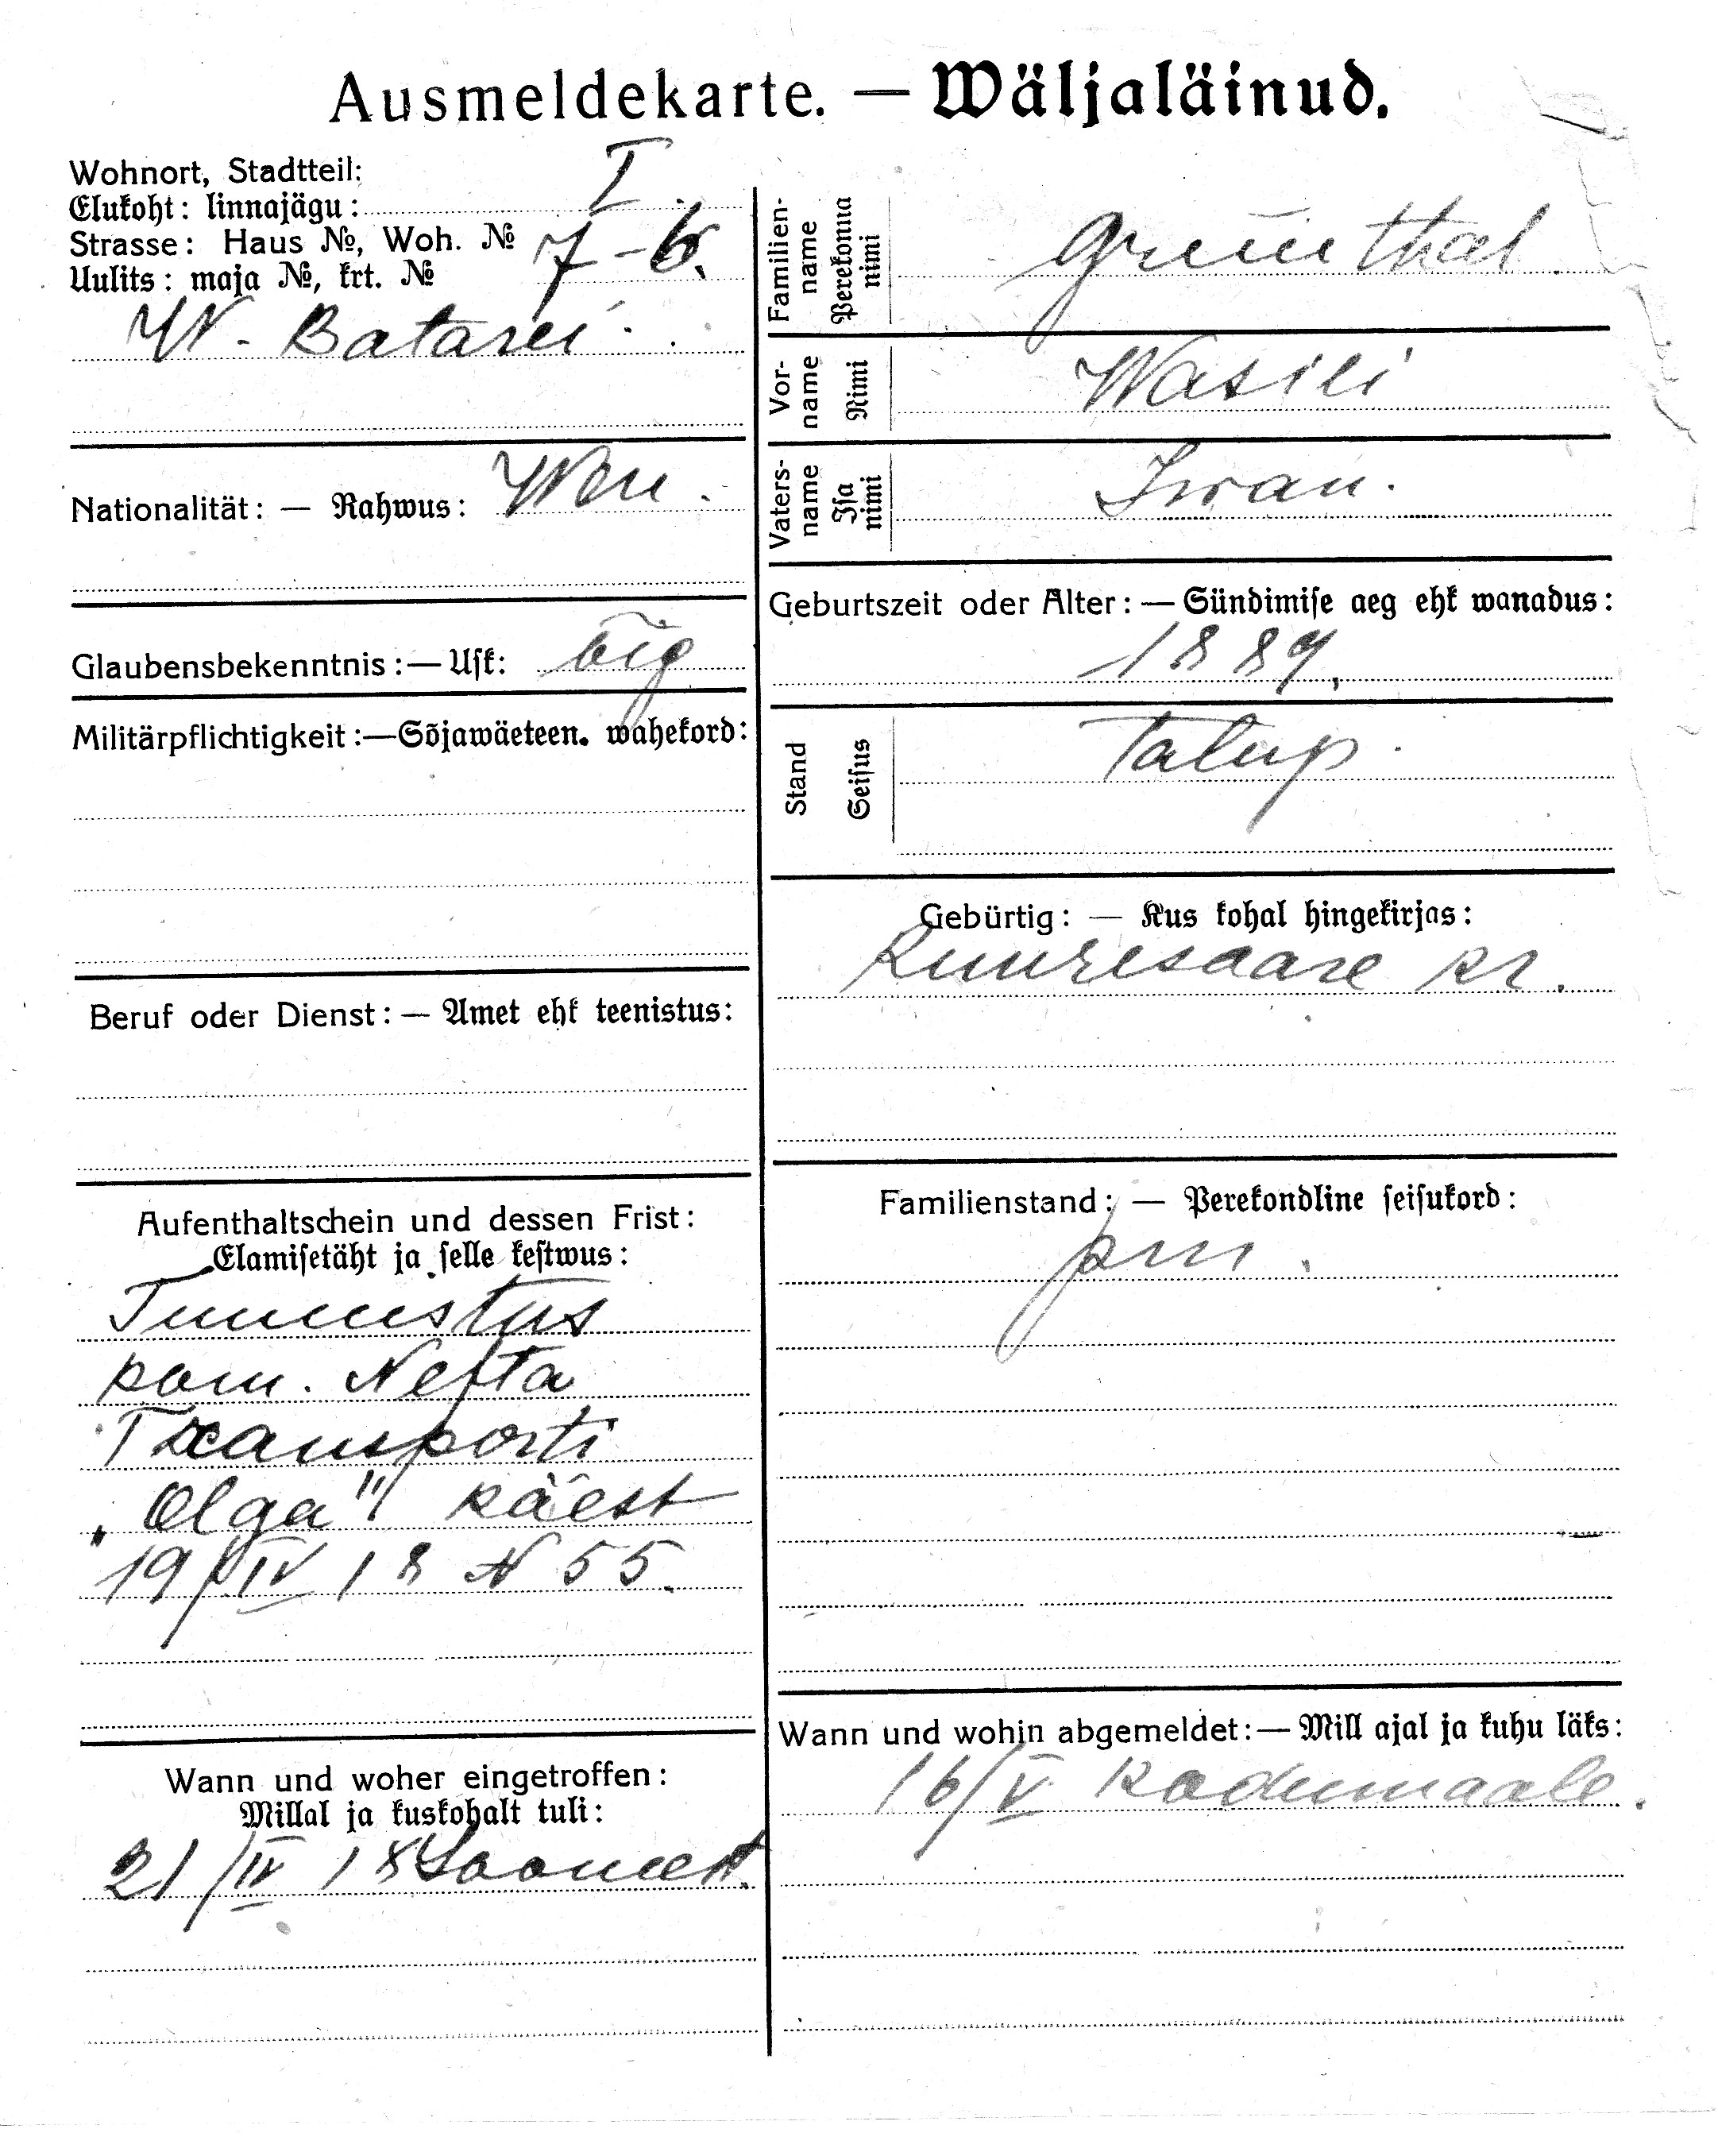 Ausmeldekarte. — Wäljaläinud.
Wohnort, Stadtteil:
Elukoht: linnajägu: I.
Strasse: Haus №, Woh. №
Uulits: maja №, krt. № 7-6.
W. Batarei.
Nationalität: — Rahwus: Wen.
Glaubensbekenntnis: — Usk: õig
Militärpflichtigkeit: — Sõjawäeteen. wahekord:
Beruf oder Dienst: — Amet ehk teenistus:
Aufenthaltschein und dessen Frist:
Elamisetäht ja selle kestwus:
Tunnistus
kom. Nefta
Transporti
„Olga" käest
19/IV 18 N 55.
Wann und woher eingetroffen:
Millal ja kuskohalt tuli:
21/IV 18 Soomest.
Familienname
Perekonna nimi
Grünthal.
Vorname
Nimi
Wasili
Vatersname
Isa nimi
Iwan.
Geburtszeit oder Alter: — Sündimise aeg ehk wanadus:
1889.
Stand
Seisus
Talup.
Gebürtig: — Kus kohal hingekirjas:
Kuuresaare kr.
Familienstand: — Perekondline seisukord:
pm.
Wann und wohin abgemeldet: — Mill ajal ja kuhu läks:
16/V Kodumaale.